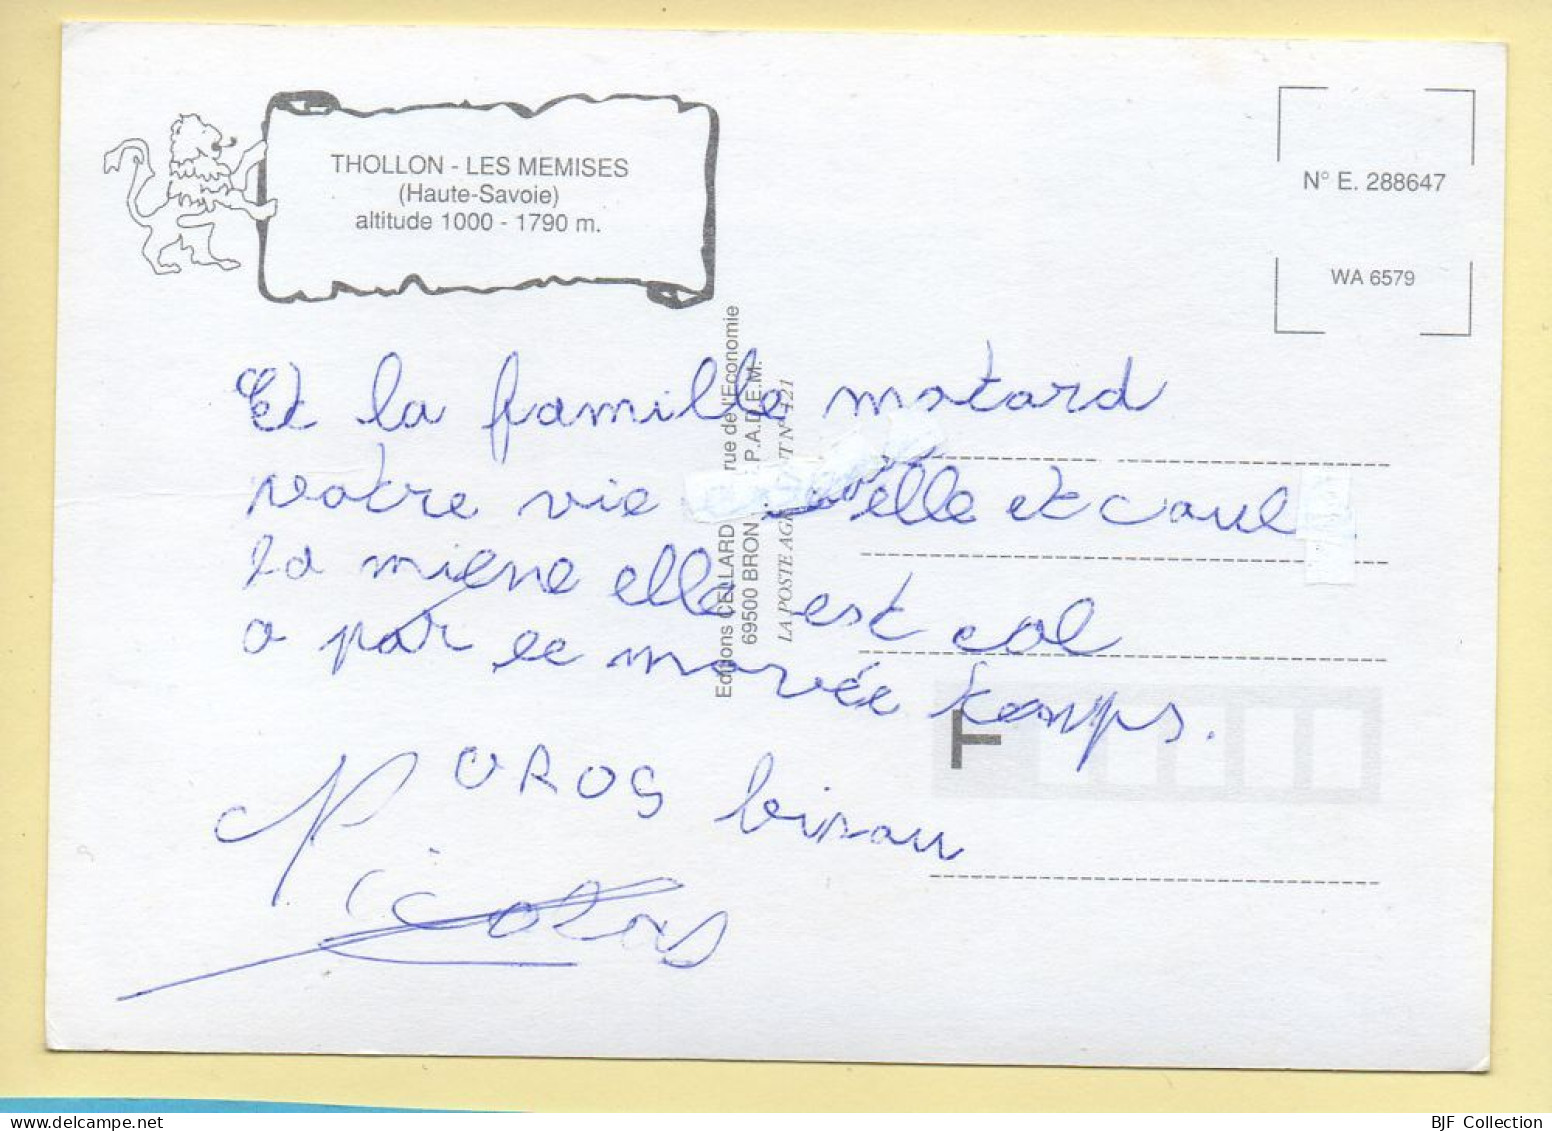 THOLLON - LES MEMISES
(Haute-Savoie)
altitude 1000 - 1790 m.
N° E. 288647
WA 6579
Editions CELLARD rue de l'Economie
69500 BRON P.A.D.E.M.
LA POSTE AG T N° 421
Et la famille motard
votre vie elle et
la miene elle est col
a par le movée temps.
GROS bisou
Nicolas
BJF Collection